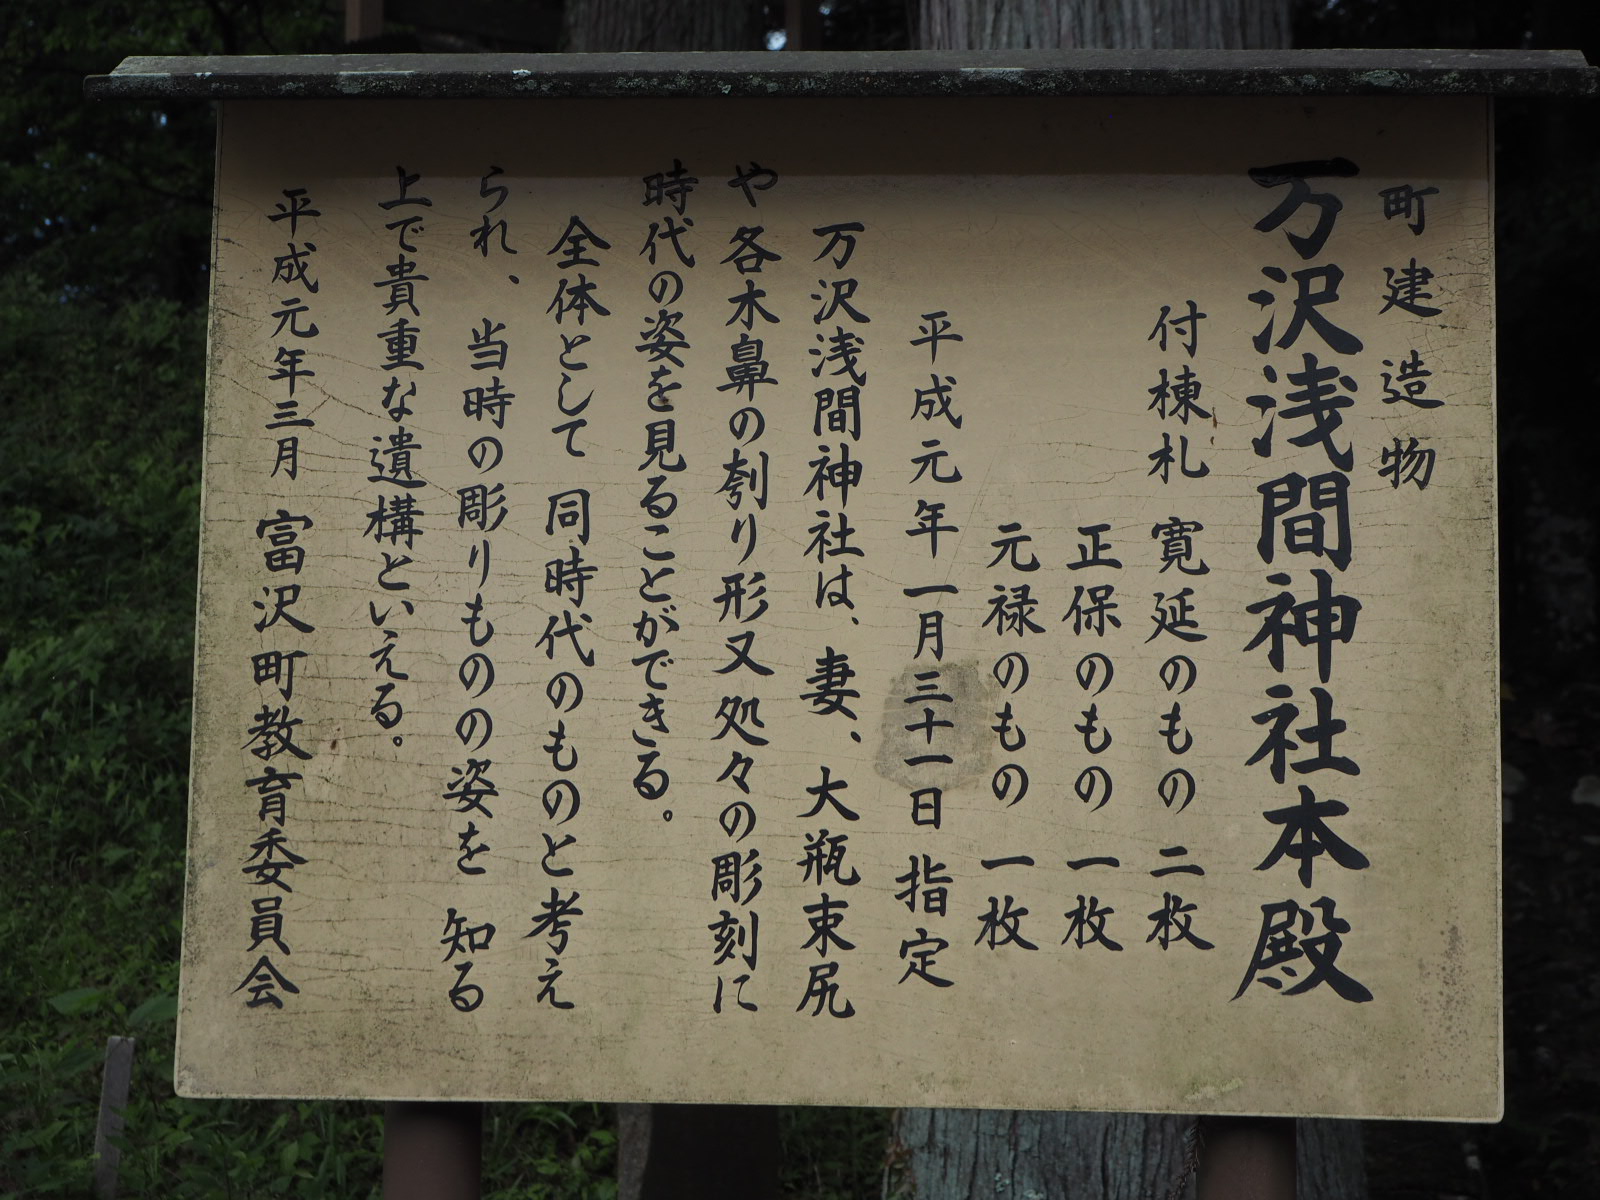 町建造物
万沢浅間神社本殿
付棟札 寛延のもの 二枚
正保のもの 一枚
元禄のもの 一枚
平成元年一月三十一日 指定
万沢浅間神社は、妻、大瓶束尻
や各木鼻の刳り形又処々の彫刻に
時代の姿を見ることができる。
全体として 同時代のものと考え
られ、当時の彫りものの姿を 知る
上で貴重な遺構といえる。
平成元年三月 富沢町教育委員会